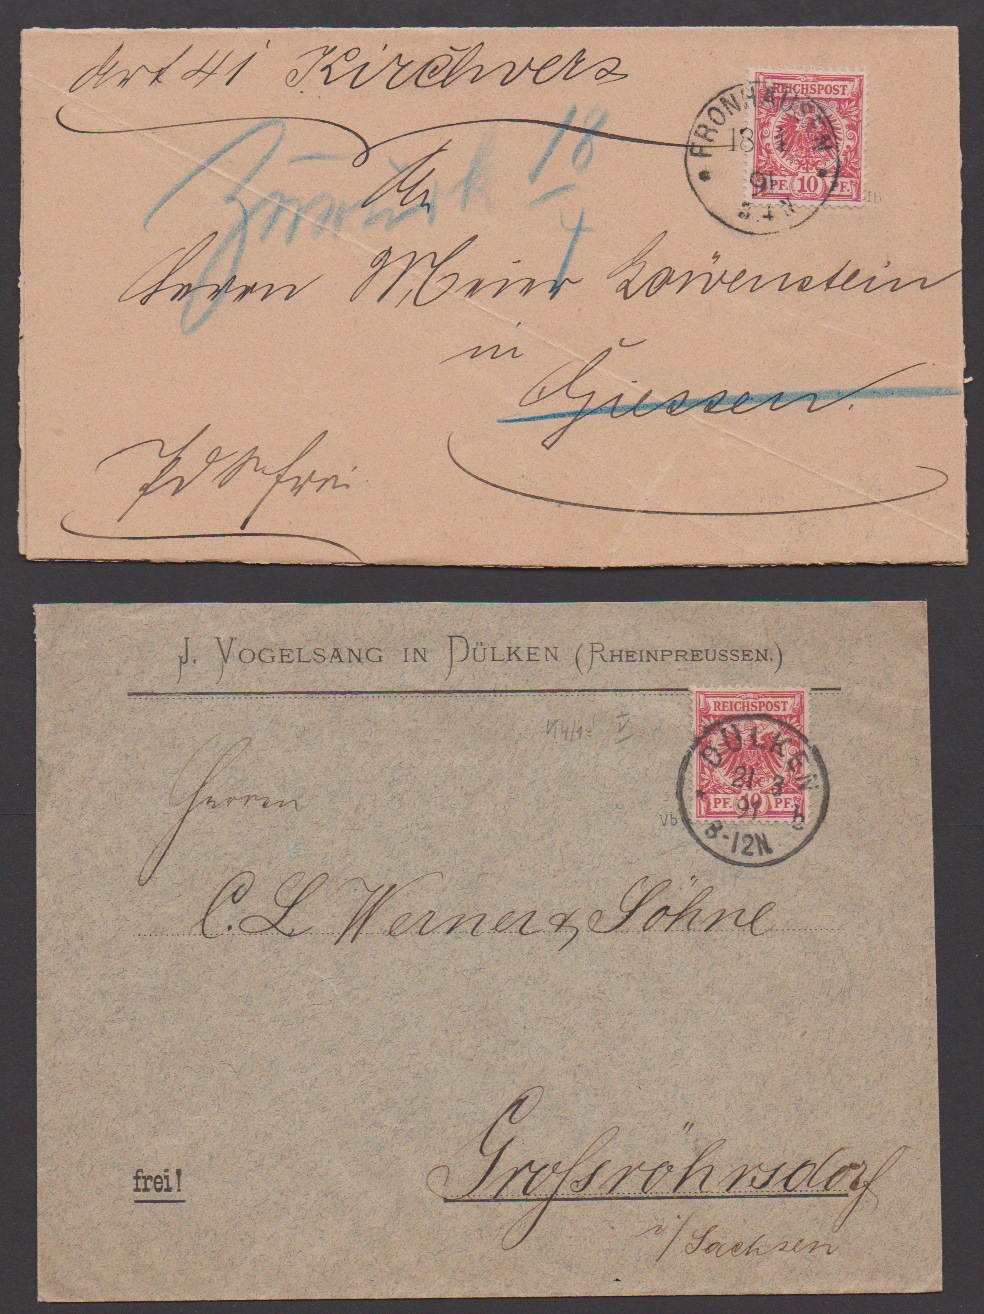 Art 41 Kirchvers
REICHSPOST
PF. 10 PF.
FRONHAUSEN
18 4
91
3.4 N
Zurück 18/4
An
Herrn Meier Löwenstein
in
Giessen.
frei
J. VOGELSANG IN DÜLKEN (RHEINPREUSSEN.)
REICHSPOST
PF. 10 PF.
DÜLKEN
21 3
91 b
8-12N.
Vb
V
Herren
C. L. Werner & Söhne
Grossröhrsdorf
i/Sachsen
frei!